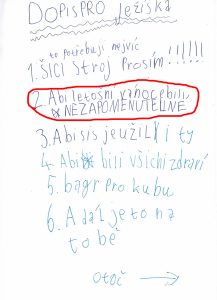 DOPIS PRO JEŽÍŠKA
to potřebuji nejvíc
1. ŠICÍ Stroj Prosím!!!!!!
2. Abi letošní vánoce bili
NEZAPOMENUTELNÉ
3. Abisis je užili i ty
4. Abi bili všichi zdraví
5. bagr pro kubu
6. A dál je to na
tobě
otoč →